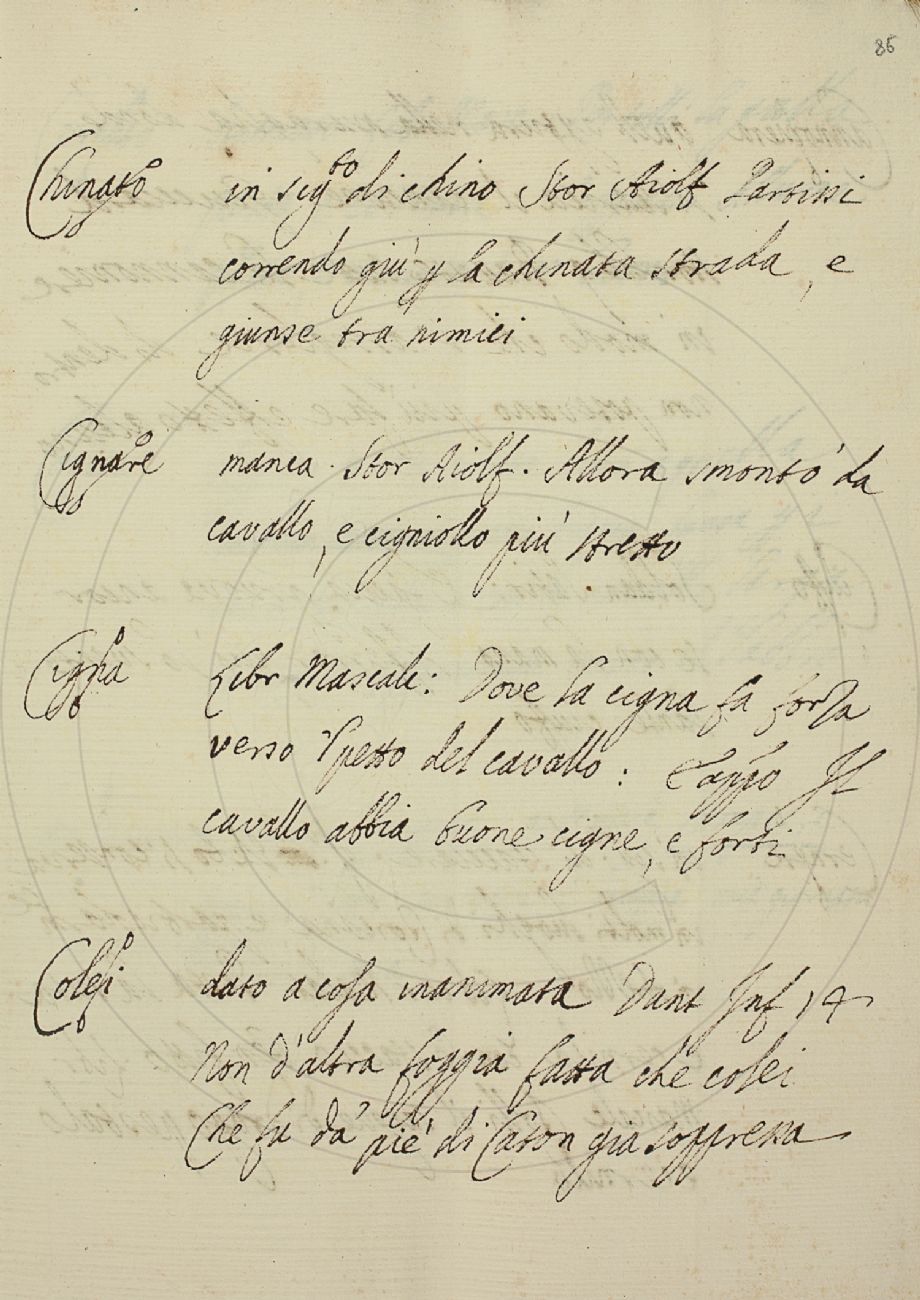 86
Chinato in sigto di chino Stor Aiolf Partissi
correndo giù p la chinata strada, e
giunse tra nimici
Cignare manca. Stor Aiolf. Allora smontò da
cavallo, e cigniollo più stretto
Cigna Libr Mascalc: Dove la cigna fa forza
verso 'l petto del cavallo: E appo Il
cavallo abbia buone cigne, e forti
Colei dato a cosa inanimata Dant Inf 14
Non d'altra foggia fatta che colei
Che fu da' piè di Caton gia soppressa